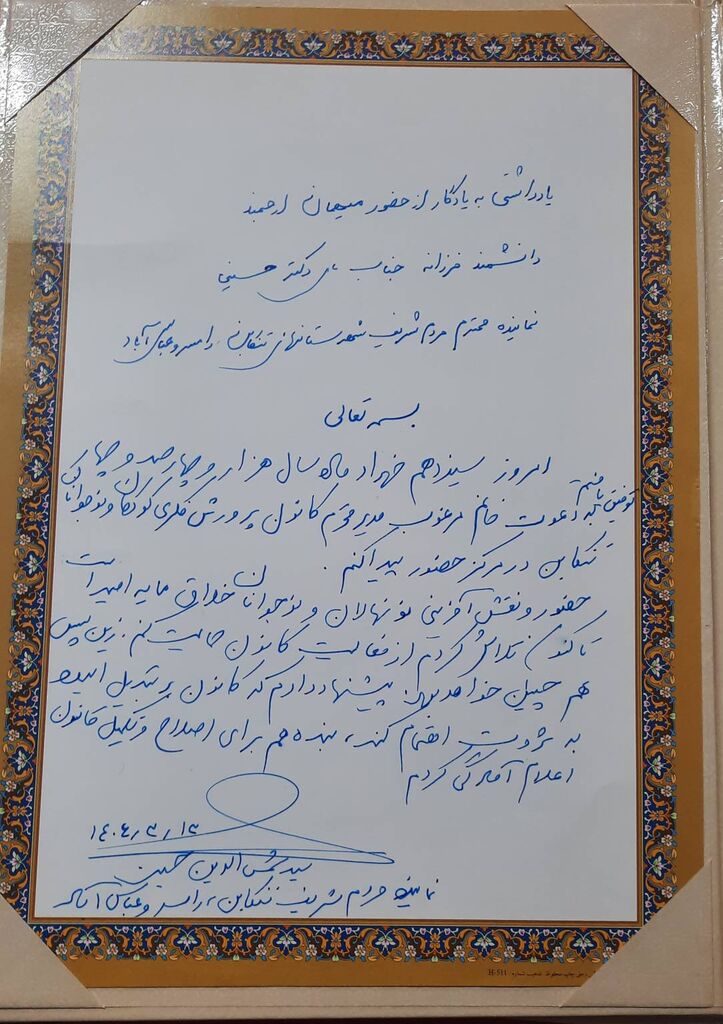 یادداشتی به یادگار از حضور میهمان ارجمند
دانشمند فرزانه جناب آقای دکتر حسینی
نماینده محترم مردم شریف شهرستانهای تنکابن، رامسر و عباس آباد
بسمه تعالی
امروز سیزدهم خرداد ماه سال هزار و چهارصد و چهار
توفیق یافتم به دعوت خانم مرغوب مدیر محترم کانون پرورش فکری کودکان و نوجوانان
تنکابن در مرکز حضور پیدا کنم.
حضور و نقش آفرینی نونهالان و نوجوانان خلاق مایه امید است
تاکنون تلاش کردم از فعالیت کانون حمایت کنم. زین پس
هم چنین خواهد بود. پیشنهاد دارم که کانون بر تبدیل ایده
به ثروت اهتمام کند، بنده هم برای اصلاح و تکمیل قانون
اعلام آمادگی کردم
۱۴۰۴/۳/۱۳
سید شمس الدین حسینی
نماینده مردم شریف تنکابن، رامسر و عباس آباد
H-511